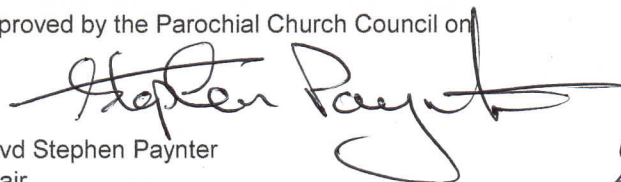 proved by the Parochial Church Council on
Stephen Paynter
vd Stephen Paynter
air